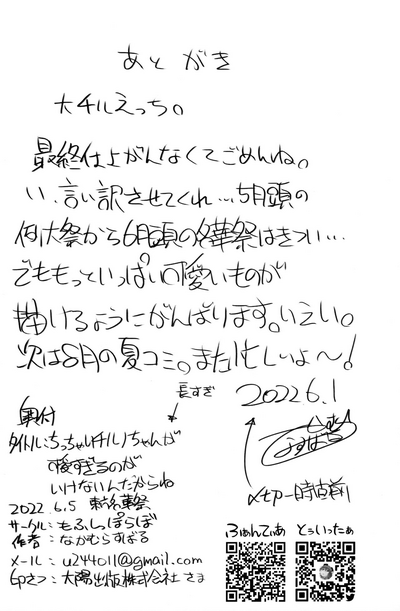 あとがき
大チルえっち。
最終仕上がんなくてごめんね。
い、言い訳させてくれ…5月頭の
例大祭から6月頭の名華祭はきつい…
でももっといっぱい可愛いものが
描けるようにがんばります。いえい。
次は8月の夏コミ。また忙しいよ〜!
長すぎ
2022.6.1
奥付
タイトル:ちっちゃいチルノちゃんが
可愛すぎるのが
いけないんだからね
2022.6.5 東方名華祭
サークル:もふしっぽらぼ
作者:なかむらすばる
メール:u244011@gmail.com
印さつ:大陽出版株式会社さま
〆切一時間前
ふぁんてぃあ
とぅいったぁ